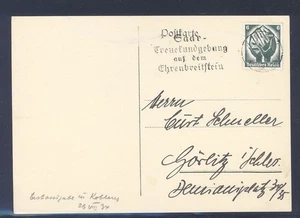 Postkarte
Saar-
Treuekundgebung
auf dem
Ehrenbreitstein
Deutsches Reich
Herrn
Curt Schneller
Görlitz i/Schles.
Demianiplatz
in Koblenz